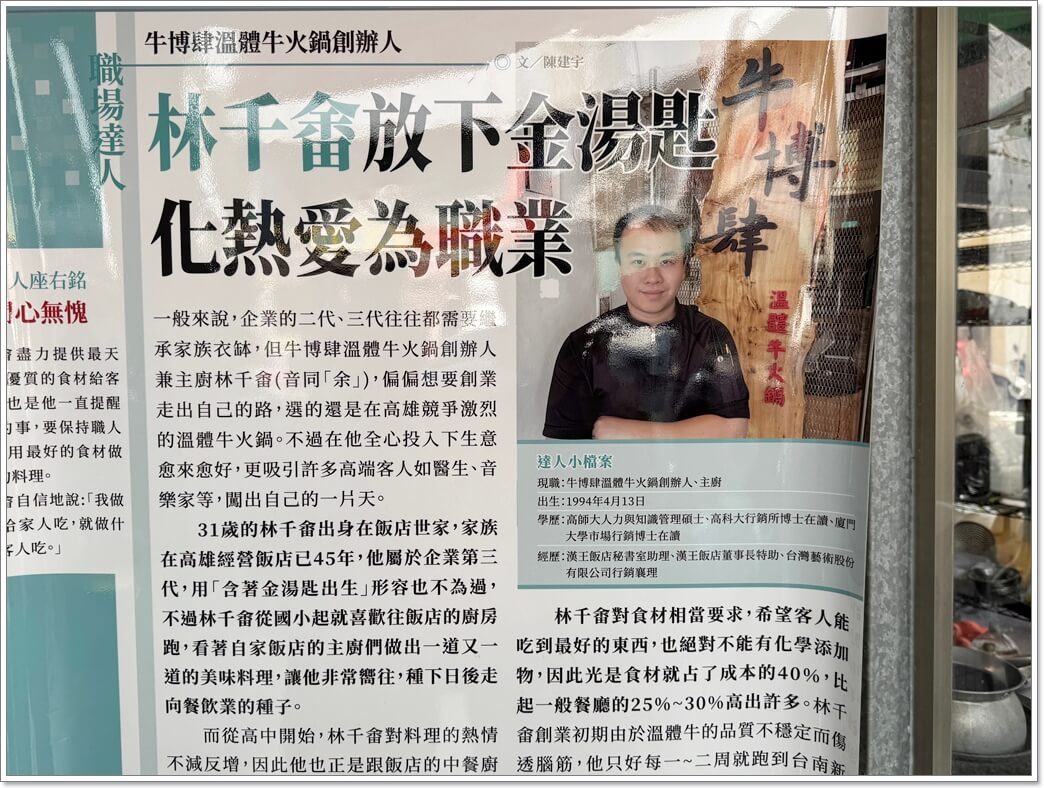 職場達人
人座右銘
心無愧
盡力提供最天
優質的食材給客
也是他一直提醒
事，要保持職人
用最好的食材做
料理。
自信地說：「我做
給家人吃，就做什
客人吃。」
牛博肆溫體牛火鍋創辦人
文／陳建宇
林千畬放下金湯匙
化熱愛為職業
一般來說，企業的二代、三代往往都需要繼
承家族衣缽，但牛博肆溫體牛火鍋創辦人
兼主廚林千畬(音同「余」)，偏偏想要創業
走出自己的路，選的還是在高雄競爭激烈
的溫體牛火鍋。不過在他全心投入下生意
愈來愈好，更吸引許多高端客人如醫生、音
樂家等，闖出自己的一片天。
31歲的林千畬出身在飯店世家，家族
在高雄經營飯店已45年，他屬於企業第三
代，用「含著金湯匙出生」形容也不為過，
不過林千畬從國小起就喜歡往飯店的廚房
跑，看著自家飯店的主廚們做出一道又一
道的美味料理，讓他非常嚮往，種下日後走
向餐飲業的種子。
而從高中開始，林千畬對料理的熱情
不減反增，因此他也正是跟飯店的中餐廚
牛博肆
溫體牛火鍋
達人小檔案
現職：牛博肆溫體牛火鍋創辦人、主廚
出生：1994年4月13日
學歷：高師大人力與知識管理碩士、高科大行銷所博士在讀、廈門
大學市場行銷博士在讀
經歷：漢王飯店秘書室助理、漢王飯店董事長特助、台灣藝術股份
有限公司行銷襄理
林千畬對食材相當要求，希望客人能
吃到最好的東西，也絕對不能有化學添加
物，因此光是食材就占了成本的40%，比
起一般餐廳的25%~30%高出許多。林千
畬創業初期由於溫體牛的品質不穩定而傷
透腦筋，他只好每一~二周就跑到台南新